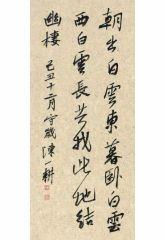 朝出白雲東暮卧白雲
西白雲長共我此地結
幽棲
己丑十二月守 陳一耕